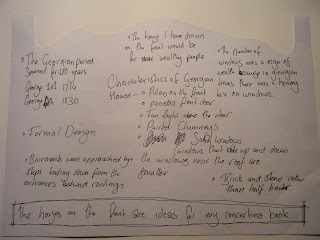 The house I have drawn
on the front would be
for wealthy people
• The Georgian period
Spanned for 100 years
George 1st 1714
George 1830
• The Number of
windows was a sign of
wealth because in georgian
times there was a heavy
tax on windows.
Characteristics of Georgian
House - • Pillars on the front
• paneled front door
• Fan light above the door
• Paired Chimneys
• Sash windows
(windows that slide up and down
• the windows near the roof are
smaller
• Formal Design
• Basements were approached by
steps leading down from the
entrances behind railings.
• Brick and stone rather
than half timber
The houses on the front are ideas for my concertina book...